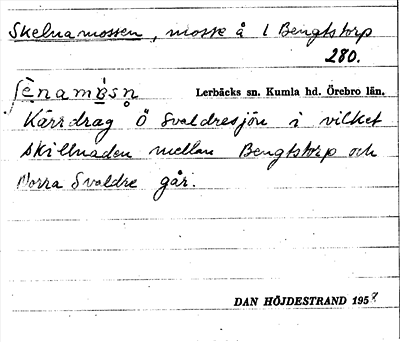 Skelnamossen, mosse å 1 Bengtstorp
280.
ʃènamòsn̥
Lerbäcks sn. Kumla hd. Örebro län.
Kärrdrag Ö Svaldresjön i vilket
skillnaden mellan Bengtstorp och
Norra Svaldre går.
DAN HÖJDESTRAND 1958